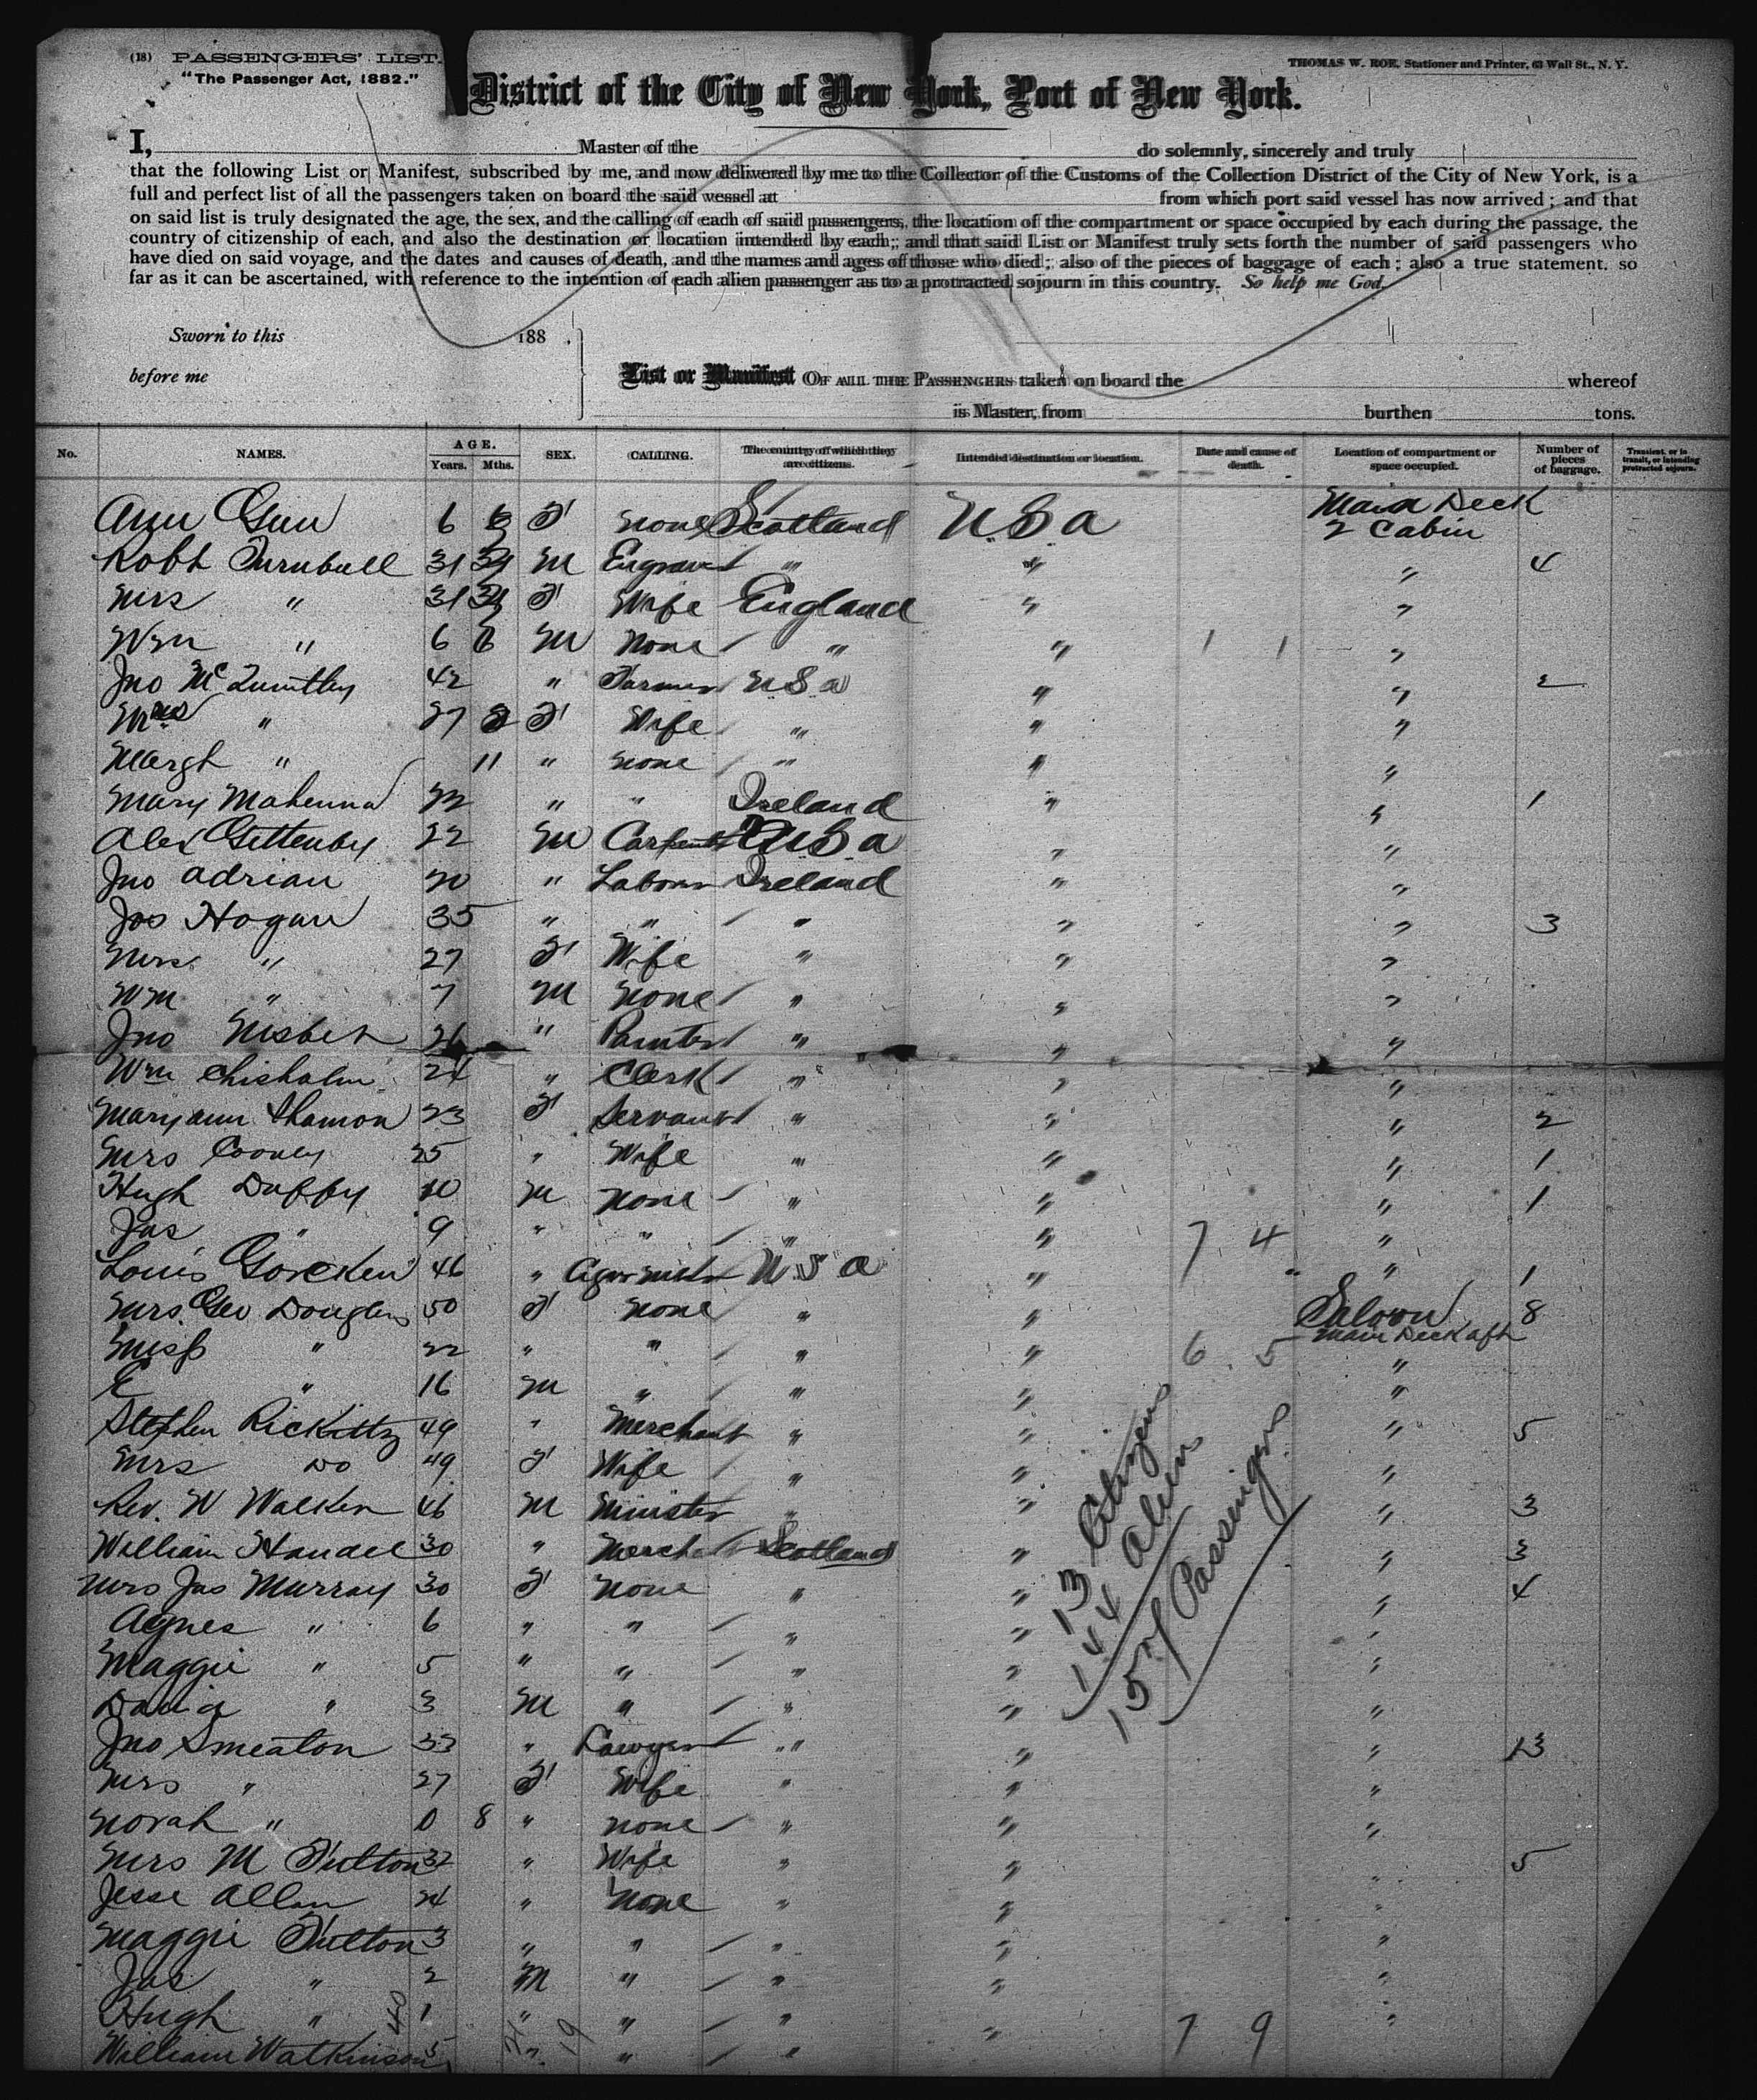 (18) PASSENGERS' LIST.
"The Passenger Act, 1882."
THOMAS W. ROE, Stationer and Printer, 63 Wall St., N. Y.
District of the City of New York, Port of New York.
I, Master of the do solemnly, sincerely and truly
that the following List or Manifest, subscribed by me, and now delivered by me to the Collector of the Customs of the Collection District of the City of New York, is a
full and perfect list of all the passengers taken on board the said vessel at from which port said vessel has now arrived; and that
on said list is truly designated the age, the sex, and the calling of each of said passengers, the location of the compartment or space occupied by each during the passage, the
country of citizenship of each, and also the destination or location intended by each; and that said List or Manifest truly sets forth the number of said passengers who
have died on said voyage, and the dates and causes of death, and the names and ages of those who died; also of the pieces of baggage of each; also a true statement, so
far as it can be ascertained, with reference to the intention of each alien passenger as to a protracted sojourn in this country. So help me God.
Sworn to this 188 .
before me
List or Manifest OF ALL THE PASSENGERS taken on board the whereof
is Master, from burthen tons.
No. NAMES. AGE. Years. Mths. SEX. CALLING. The country of which they are citizens. Intended destination or location. Date and cause of death. Location of compartment or space occupied. Number of pieces of baggage. Transient, or in transit, or intending protracted sojourn.
Ann Gun 6 F none Scotland U S a Main Deck 2 Cabin
Robt Turnbull 31 M Engraver " " " 4
Mrs " 31 F Wife England " "
Wm " 6 M None " " 1 1 "
Jno 42 " Farmer U S a " " 2
Mrs " 27 F Wife " " "
Margt " 11 " none " " "
Mary 22 " " Ireland " " 1
Alex Gettenby 22 M Carpenter U S a " "
Jno Adrian 20 " Labourer Ireland " "
Jos Hogan 35 " " " " " 3
Mrs " 27 F Wife " " "
Wm " 7 M None " " "
Jno Nisbet " Painter " " "
Wm Chisholm 24 " Clerk " " "
Mary ann 23 F Servant " " " 2
Mrs Cooney 25 " Wife " " " 1
Hugh Duffy 10 M none " " " 1
Jas " 9 " " " " 7 4 "
Louis 46 " U S a " " 1
Mrs. Geo Douglas 50 F none " " Saloon 8
Main Deck aft
Miss " 22 " " " " 6 5 "
E " 16 M " " " "
Stephen 49 " Merchant " " " 5
Mrs Do 49 F Wife " " "
Rev. W Walker 46 M Minister " " " 3
William 30 " Scotland " " 3
Mrs Jas Murray 30 F none " " " 4
Agnes " 6 " " " " "
Maggie " 5 " " " " "
David " 3 M " " " "
Jno Smeaton 33 " Lawyer " " " 13
Mrs " 27 F Wife " " "
Norah " 0 8 " none " " "
Mrs M Fulton 32 " Wife " " " 5
Jesse Allan 24 " None " " "
Maggie Fulton 3 " " " " "
Jas " 2 M " " " "
Hugh " 1 " " " " 7 9 "
William Watkinson " " "
13 Citizens
144 Aliens
157 Passengers